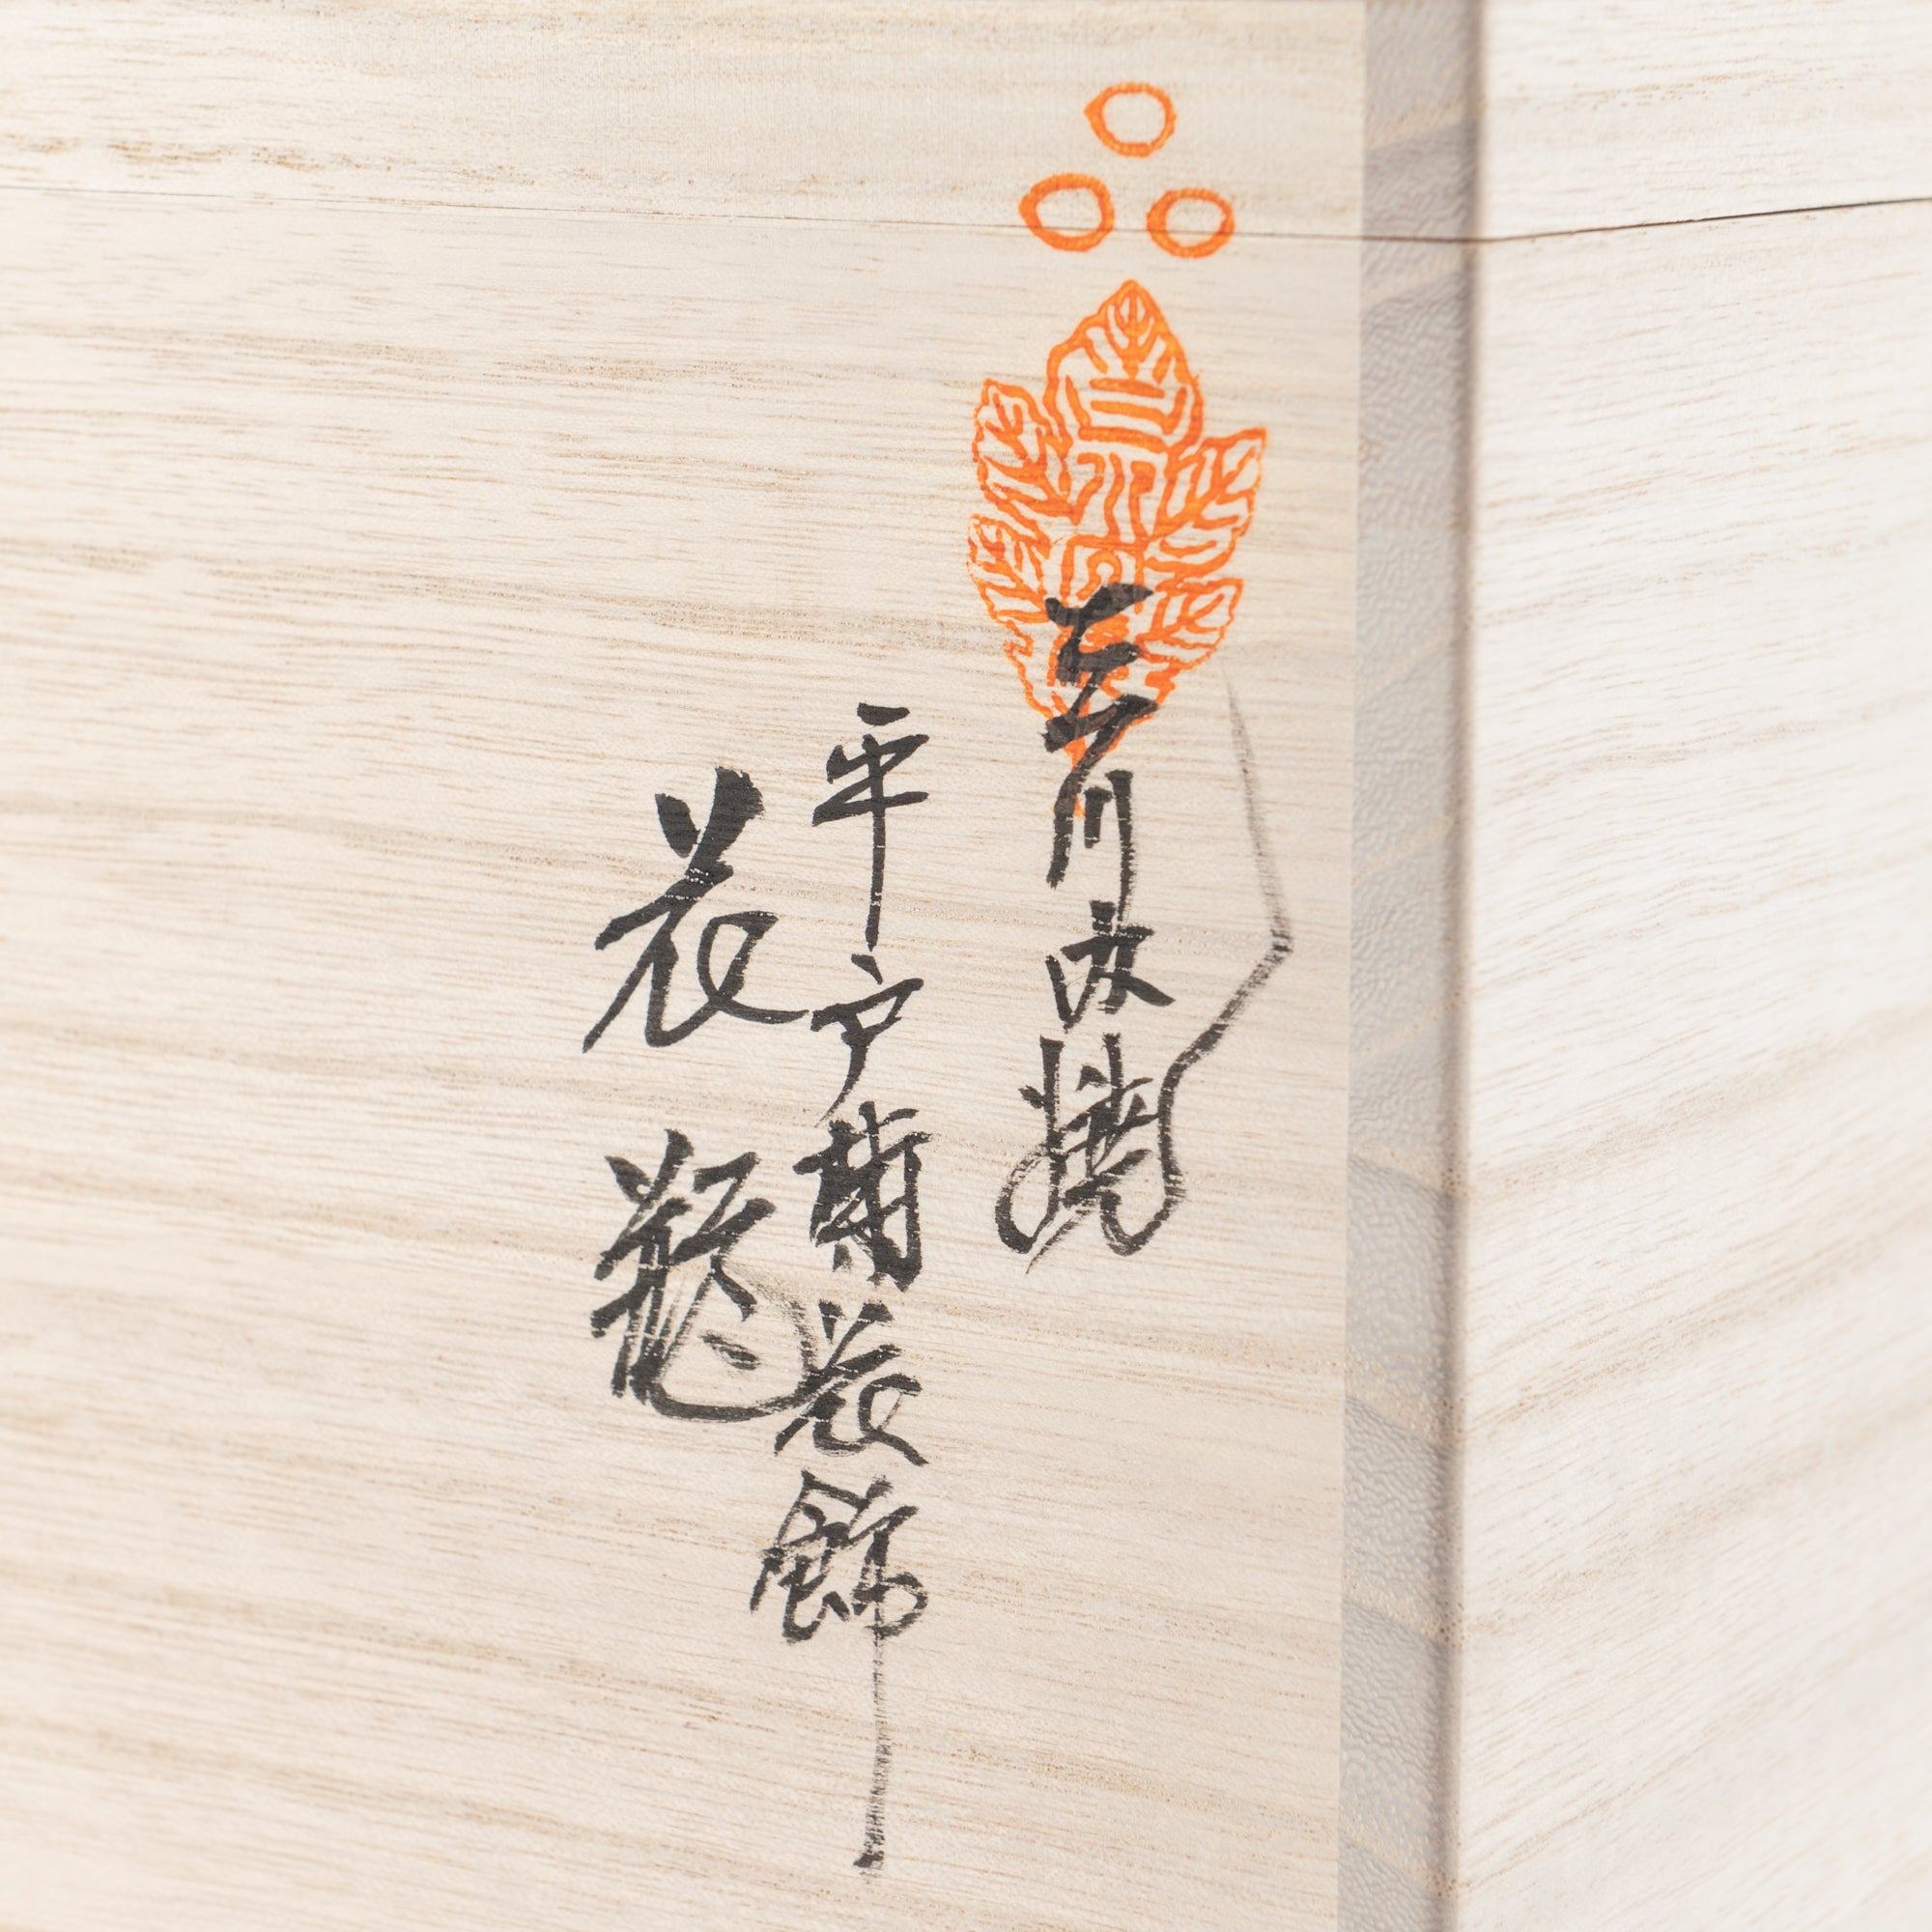 三川内焼
平戸菊花飾
花瓶